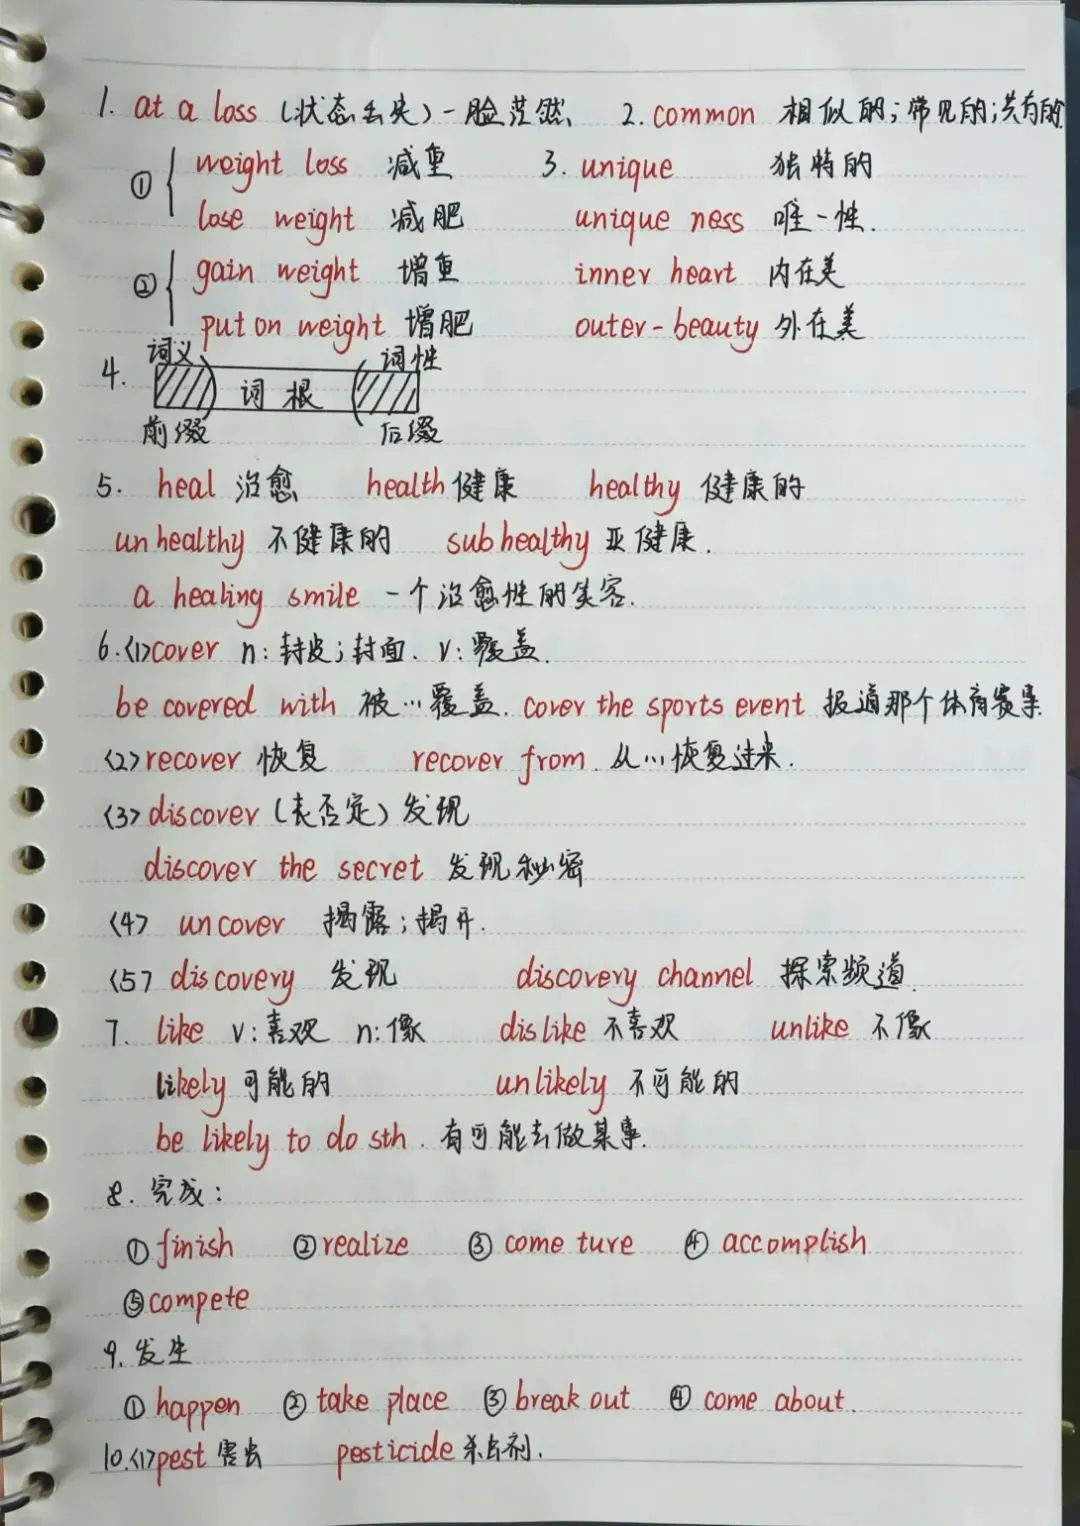 1. at a loss (状态丢失) 一脸茫然 2. common 相似的;常见的;共有的
① weight loss 减重 3. unique 独特的
lose weight 减肥 unique ness 唯一性.
② gain weight 增重 inner heart 内在美
put on weight 增肥 outer-beauty 外在美
4. 词义 词性
词根
前缀 后缀
5. heal 治愈 health 健康 healthy 健康的
unhealthy 不健康的 subhealthy 亚健康.
a healing smile 一个治愈性的笑容.
6.<1>cover n: 封皮;封面. v: 覆盖.
be covered with 被…覆盖. cover the sports event 报道那个体育赛事.
<2>recover 恢复 recover from 从…恢复过来.
<3>discover (表否定) 发现
discover the secret 发现秘密
<4> uncover 揭露;揭开.
<5> discovery 发现 discovery channel 探索频道.
7. like v:喜欢 n:像 dislike 不喜欢 unlike 不像
likely 可能的 unlikely 不可能的
be likely to do sth. 有可能去做某事.
8. 完成:
①finish ②realize ③ come ture ④ accomplish
⑤compete
9. 发生
① happen ② take place ③ break out ④ come about.
10.<1>pest 害虫 pesticide 杀虫剂.